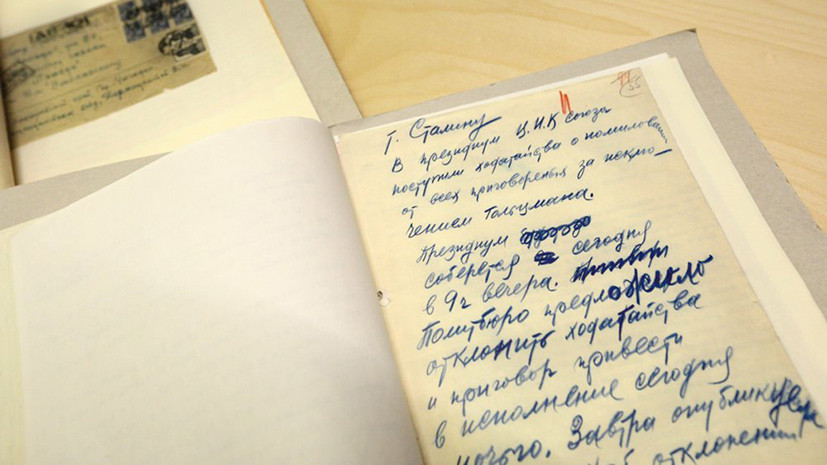 55
Т. Сталину
В президиум Ц.И.К Союза
поступили ходатайства о помиловании
от всех приговореных за исклю-
чением Гольцмана.
Президиум
соберется сегодня
в 9ч вечера.
Политбюро предложило
отклонить ходатайства
и приговор привести
в исполнение сегодня
ночью. Завтра опубликуем
отклонении